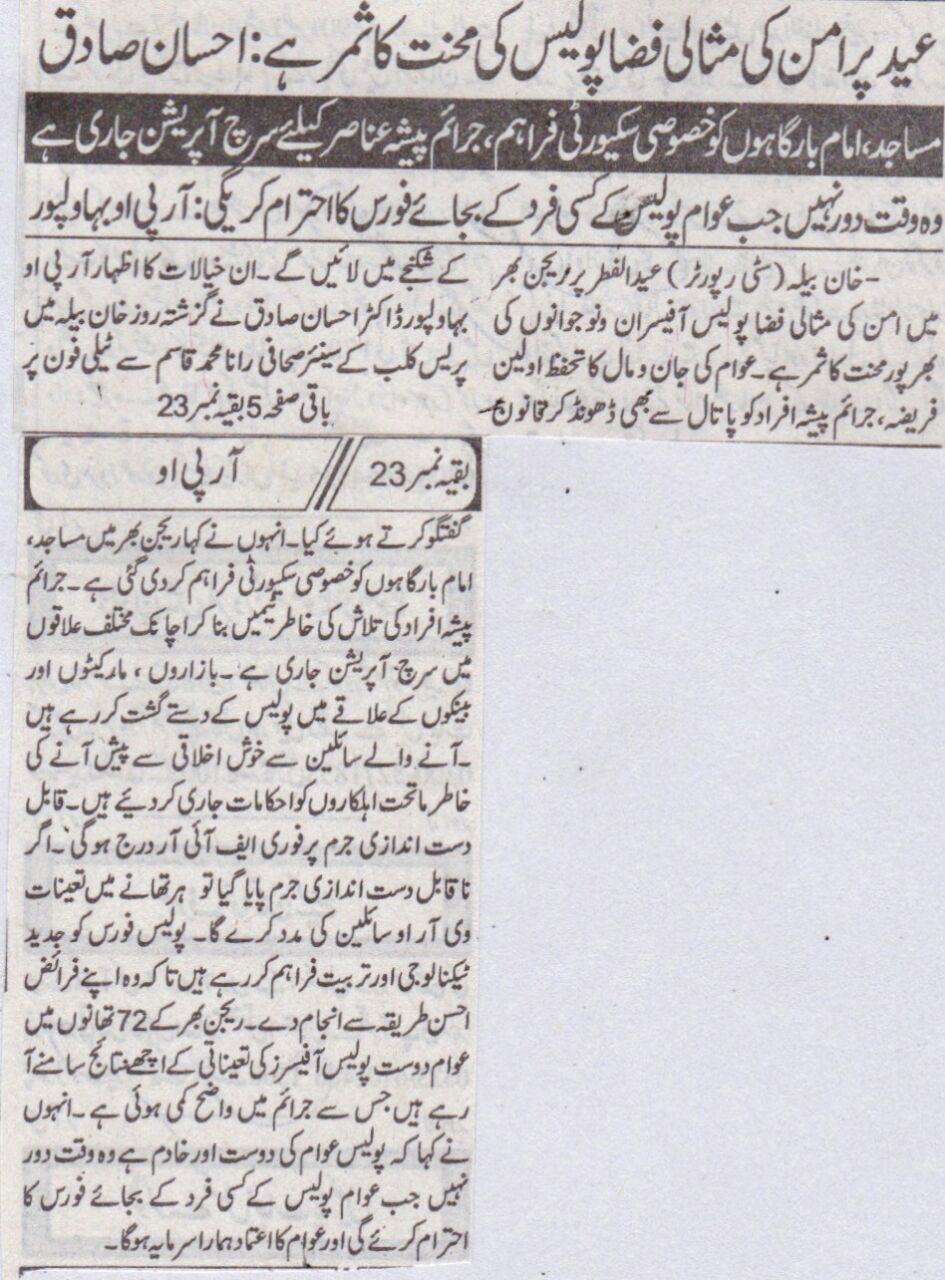 عید پر امن کی مثالی فضا پولیس کی محنت کا ثمر ہے: احسان صادق
مساجد، امام بارگاہوں کو خصوصی سکیورٹی فراہم، جرائم پیشہ عناصر کیلئے سرچ آپریشن جاری ہے
وہ وقت دور نہیں جب عوام پولیس کے کسی فرد کے بجائے فورس کا احترام کریگی: آر پی او بہاولپور
-خان بیلہ (سٹی رپورٹر) عید الفطر پر ریجن بھر
میں امن کی مثالی فضا پولیس آفیسران و نوجوانوں کی
بھرپور محنت کا ثمر ہے۔ عوام کی جان و مال کا تحفظ اولین
فریضہ، جرائم پیشہ افراد کو پاتال سے بھی ڈھونڈ کر قانون
کے شکنجے میں لائیں گے۔ ان خیالات کا اظہار آر پی او
بہاولپور ڈاکٹر احسان صادق نے گزشتہ روز خان بیلہ میں
پریس کلب کے سینئر صحافی رانا محمد قاسم سے ٹیلی فون پر
باقی صفحہ 5 بقیہ نمبر 23
بقیہ نمبر 23 // آر پی او
گفتگو کرتے ہوئے کیا۔ انہوں نے کہا ریجن بھر میں مساجد،
امام بارگاہوں کو خصوصی سکیورٹی فراہم کر دی گئی ہے۔ جرائم
پیشہ افراد کی تلاش کی خاطر ٹیمیں بنا کر اچانک مختلف علاقوں
میں سرچ آپریشن جاری ہے۔ بازاروں، مارکیٹوں اور
بینکوں کے علاقے میں پولیس کے دستے گشت کر رہے ہیں
۔آنے والے سائلین سے خوش اخلاقی سے پیش آنے کی
خاطر ماتحت اہلکاروں کو احکامات جاری کر دیئے ہیں۔ قابل
دست اندازی جرم پر فوری ایف آئی آر درج ہوگی۔ اگر
نا قابل دست اندازی جرم پایا گیا تو ہر تھانے میں تعینات
وی آر او سائلین کی مدد کرے گا۔ پولیس فورس کو جدید
ٹیکنالوجی اور تربیت فراہم کر رہے ہیں تاکہ وہ اپنے فرائض
احسن طریقہ سے انجام دے۔ ریجن بھر کے 72 تھانوں میں
عوام دوست پولیس آفیسرز کی تعیناتی کے اچھے نتائج سامنے آ
رہے ہیں جس سے جرائم میں واضح کمی ہوئی ہے۔ انہوں
نے کہا کہ پولیس عوام کی دوست اور خادم ہے وہ وقت دور
نہیں جب عوام پولیس کے کسی فرد کے بجائے فورس کا
احترام کرے گی اور عوام کا اعتماد ہمارا سرمایہ ہوگا۔